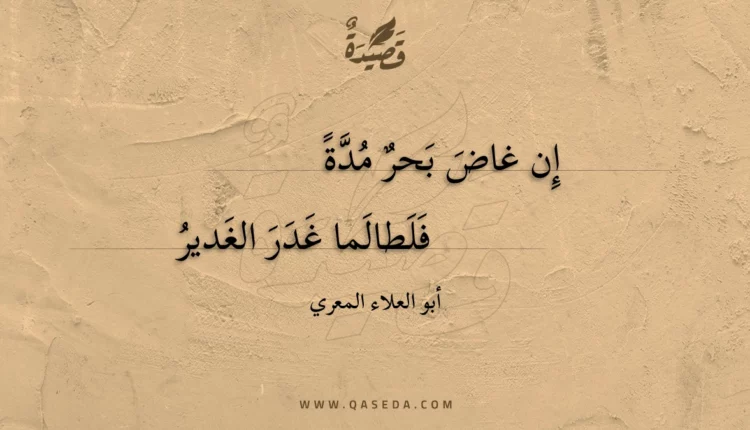 قَصِيدَةٌ
إِن غاضَ بَحرٌ مُدَّةً
فَلَطالَما غَدَرَ الغَديرُ
أبو العلاء المعري
WWW.QASEDA.COM